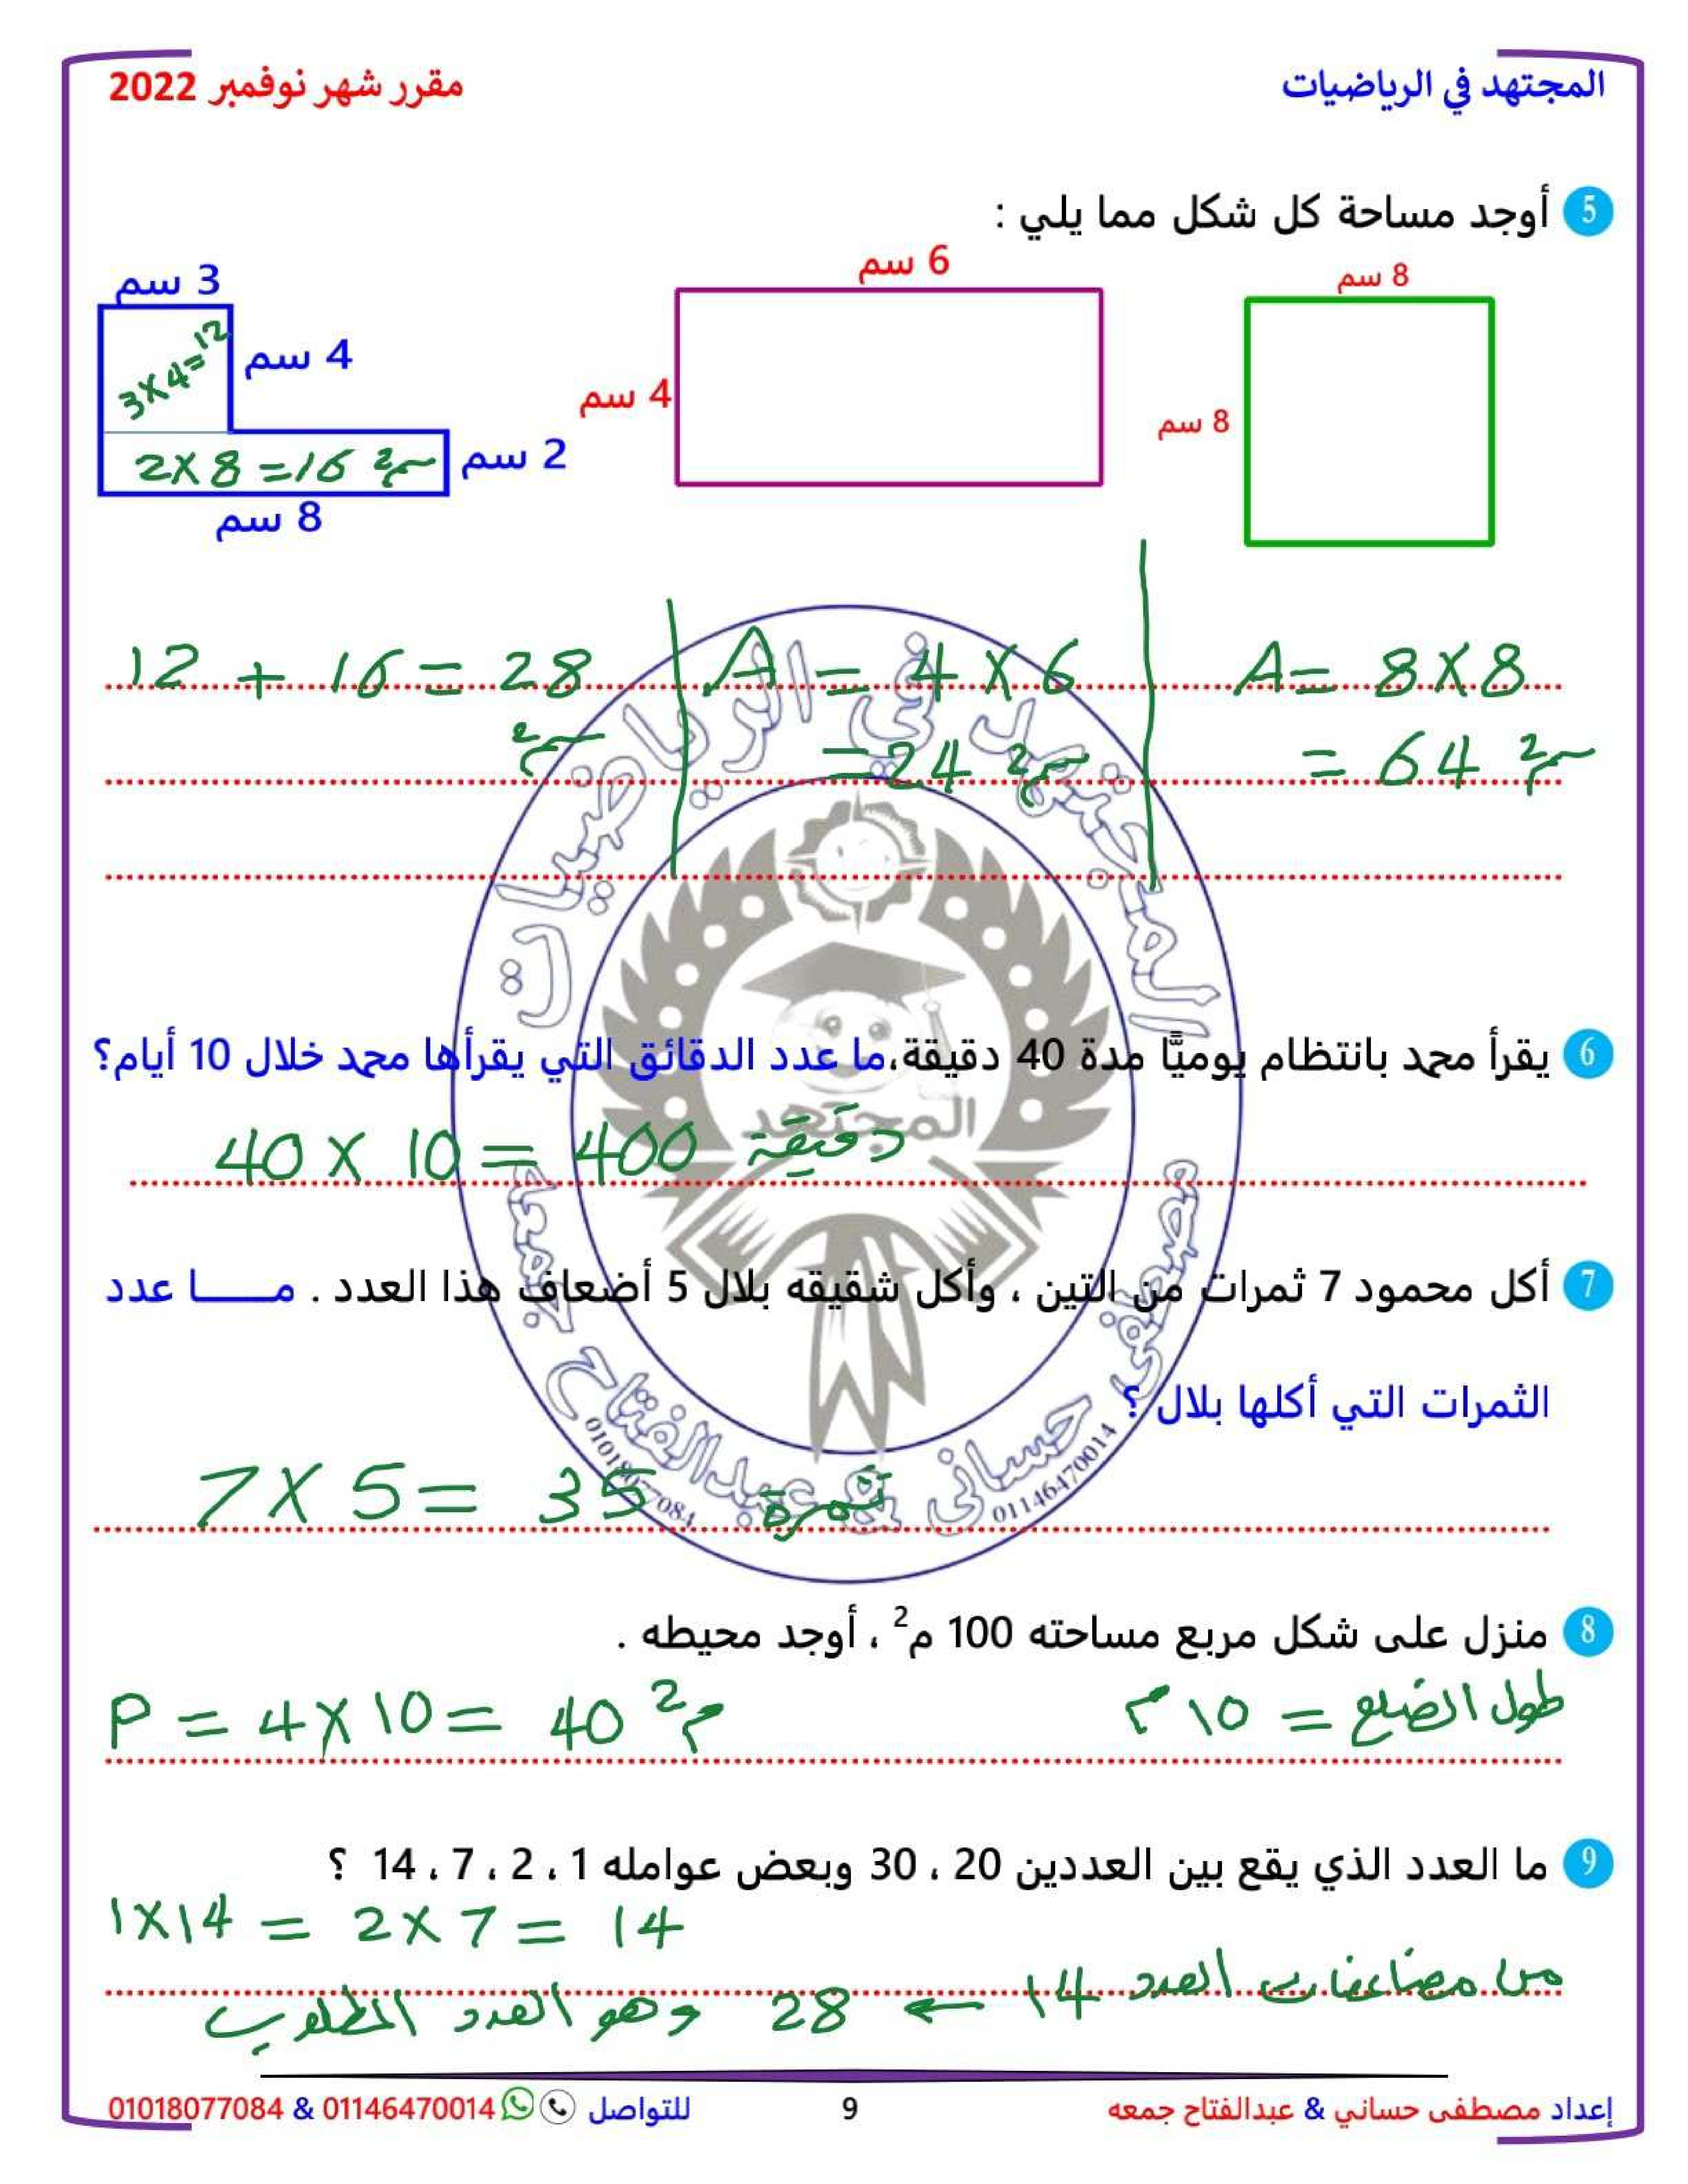 المجتهد في الرياضيات
مقرر شهر نوفمبر 2022
5 أوجد مساحة كل شكل مما يلي :
8 سم
8 سم
6 سم
4 سم
3 سم
4 سم
2 سم
8 سم
3×4=12
2×8=16 سم²
A = 8×8
= 64 سم²
A = 4×6
= 24 سم²
12 + 16 = 28
سم²
6 يقرأ محمد بانتظام يوميًّا مدة 40 دقيقة،ما عدد الدقائق التي يقرأها محمد خلال 10 أيام؟
40 × 10 = 400 دقيقة
7 أكل محمود 7 ثمرات من التين ، وأكل شقيقه بلال 5 أضعاف هذا العدد . مـــــا عدد
الثمرات التي أكلها بلال ؟
7 × 5 = 35 ثمرة
8 منزل على شكل مربع مساحته 100 م² ، أوجد محيطه .
طول الضلع = 10 م
P = 4×10 = 40 م²
9 ما العدد الذي يقع بين العددين 20 ، 30 وبعض عوامله 1 ، 2 ، 7 ، 14 ؟
1×14 = 2×7 = 14
من مضاعفات العدد 14 ← 28 وهو العدد المطلوب
المجتهد في الرياضيات
المجتهد
مصطفى حساني & عبدالفتاح جمعه
01146470014
01018077084
إعداد مصطفى حساني & عبدالفتاح جمعه
9
للتواصل 01146470014 & 01018077084